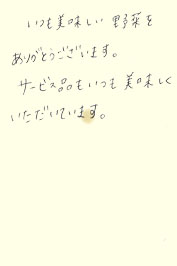 いつも美味しい野菜を
ありがとうございます。
サービス品もいつも美味しく
いただいています。